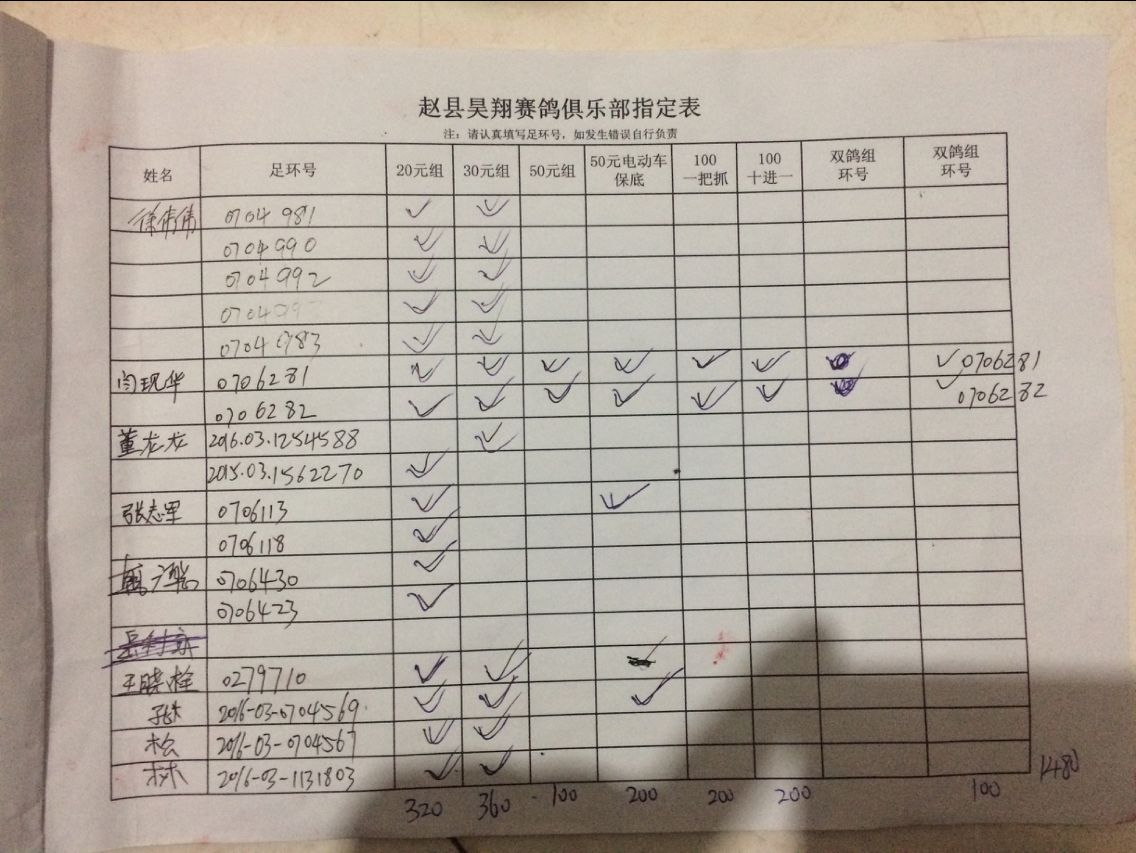 赵县昊翔赛鸽俱乐部指定表
注：请认真填写足环号，如发生错误自行负责
姓名 足环号 20元组 30元组 50元组 50元电动车保底 100一把抓 100十进一 双鸽组环号 双鸽组环号
徐伟伟 0704981 ✓ ✓
0704990 ✓ ✓
0704992 ✓ ✓
✓ ✓
0704983 ✓ ✓
闫现华 0706281 ✓ ✓ ✓ ✓ ✓ ✓ ✓ 0706281
0706282 ✓ ✓ ✓ ✓ ✓ ✓ ✓ 0706282
董龙龙 2016.03.1254588 ✓
2015.03.1562270 ✓
张志里 0706113 ✓ ✓
0706118 ✓
0706430 ✓
0706423 ✓
王晓栓 0279710 ✓ ✓
2016-03-0704569 ✓ ✓ ✓
松 2016-03-0704567 ✓ ✓
林 2016-03-1131803 ✓ ✓
320 360 100 200 200 200 100 1480